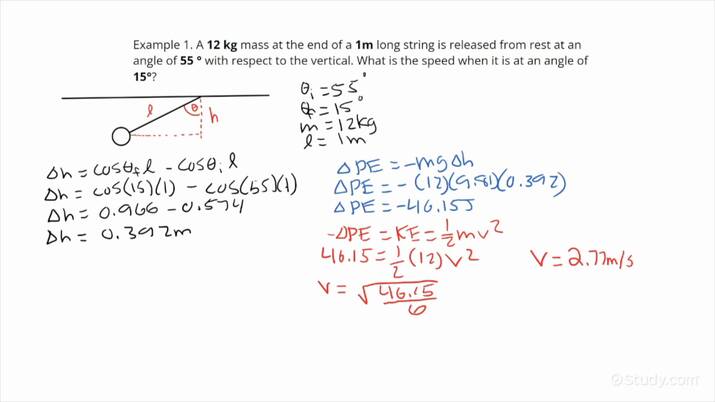 Example 1. A 12 kg mass at the end of a 1m long string is released from rest at an
angle of 55 ° with respect to the vertical. What is the speed when it is at an angle of
15°?
θi = 55°
θf = 15°
m = 12kg
l = 1m
l
θ
h
Δh = cosθf l - cosθi l
Δh = cos(15)(1) - cos(55)(1)
Δh = 0.966 - 0.574
Δh = 0.392m
ΔPE = -mgΔh
ΔPE = -(12)(9.81)(0.392)
ΔPE = -46.15J
-ΔPE = KE = 1/2 mv²
46.15 = 1/2 (12) v²
v = √46.15/6
v = 2.77m/s
©Study.com